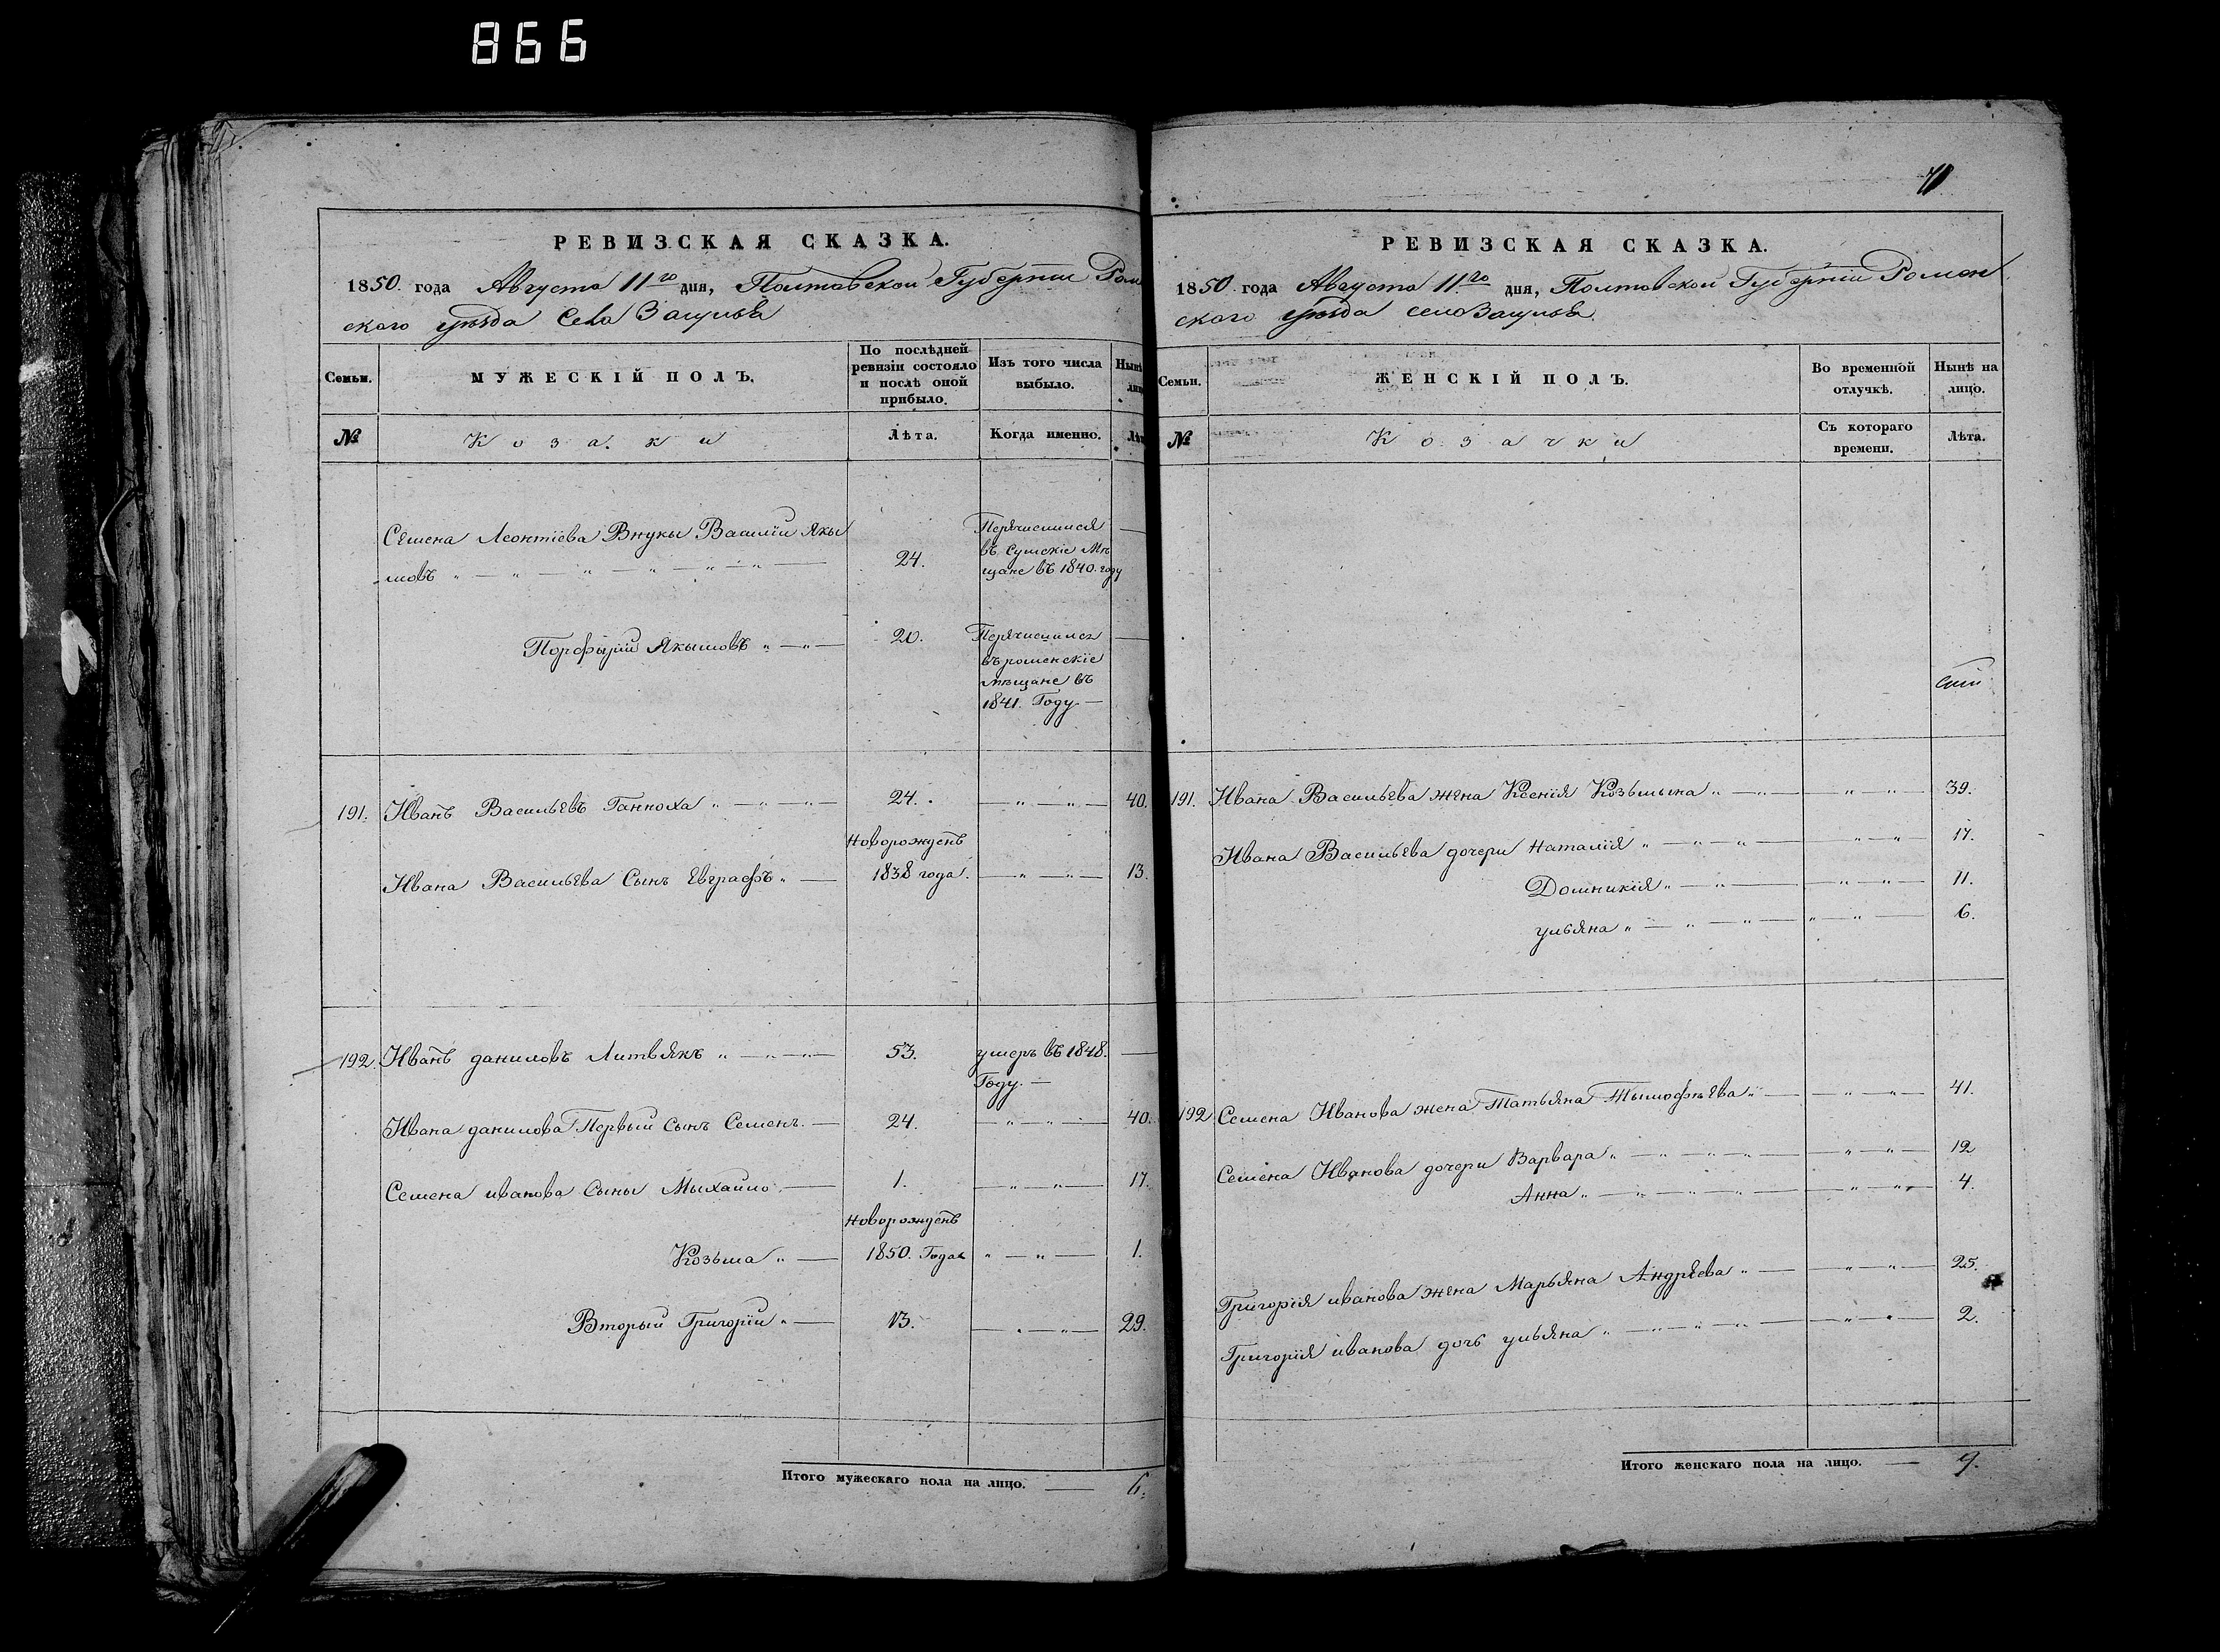 866
РЕВИЗСКАЯ СКАЗКА.
1850. года Августа 11го дня, Полтавской Губерніи Ромен
ского уѣзда Села Засулья
Семьи. МУЖЕСКІЙ ПОЛЪ. По послѣдней ревизіи состояло и послѣ оной прибыло. Изъ того числа выбыло. Нынѣ
№ Козаки Лѣта. Когда именно. Лѣт
Семена Леонтіева Внуки Василій Якы
мовъ 24. Перечислился въ Сумскіе Мѣщане въ 1840. году
Порфирій Якымовъ 20. Перечислился въ роменскіе мѣщане въ 1841. Году
191. Иванъ Васильевъ Ганноха 24. 40.
Новорожденъ
Ивана Васильева Сынъ Евграфъ 1838 года. 13.
192. Иванъ даниловъ Литвякъ 53. умеръ въ 1848. Году.
Ивана данилова Первый сынъ Семенъ. 24. 40.
Семена иванова Сыны Мыхайло 1. 17.
Новорожденъ
Козьма 1850. Года 1.
Вторый Григорій 13. 29.
Итого мужескаго пола на лицо. 6.
РЕВИЗСКАЯ СКАЗКА.
1850. года Августа 11го дня, Полтавской Губерніи Ромен
ского уѣзда села Засулья
Семьи. ЖЕНСКІЙ ПОЛЪ. Во временной отлучкѣ. Нынѣ на лицо.
№ Козачки Съ котораго времени. Лѣта.
191. Ивана Васильева жена Ксенія Козьмина 39.
Ивана Васильева дочери Наталія 17.
Домникія 11.
ульяна 6.
192 Семена Иванова жена Татьяна Тымофѣева 41.
Семена Иванова дочери Варвара 12
Анна 4.
Григорія иванова жена Марьяна Андрѣева 25.
Григорія иванова дочь ульяна 2.
Итого женскаго пола на лицо. 9.